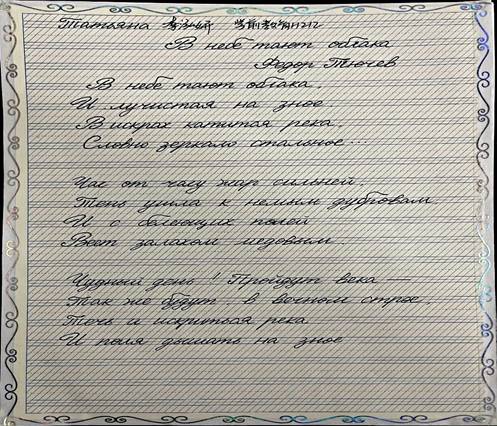 Татьяна 李 学前教育 212
В небе тают облака
Федор Тютчев
В небе тают облака,
И лучистая на зное
В искрах катится река,
Словно зеркало стальное...
Час от часу жар сильней,
Тень ушла к немым дубровам,
И с белеющих полей
Веет запахом медовым.
Чудный день! Пройдут века —
Так же будут, в вечном строе,
Течь и искриться река
И поля дышать на зное